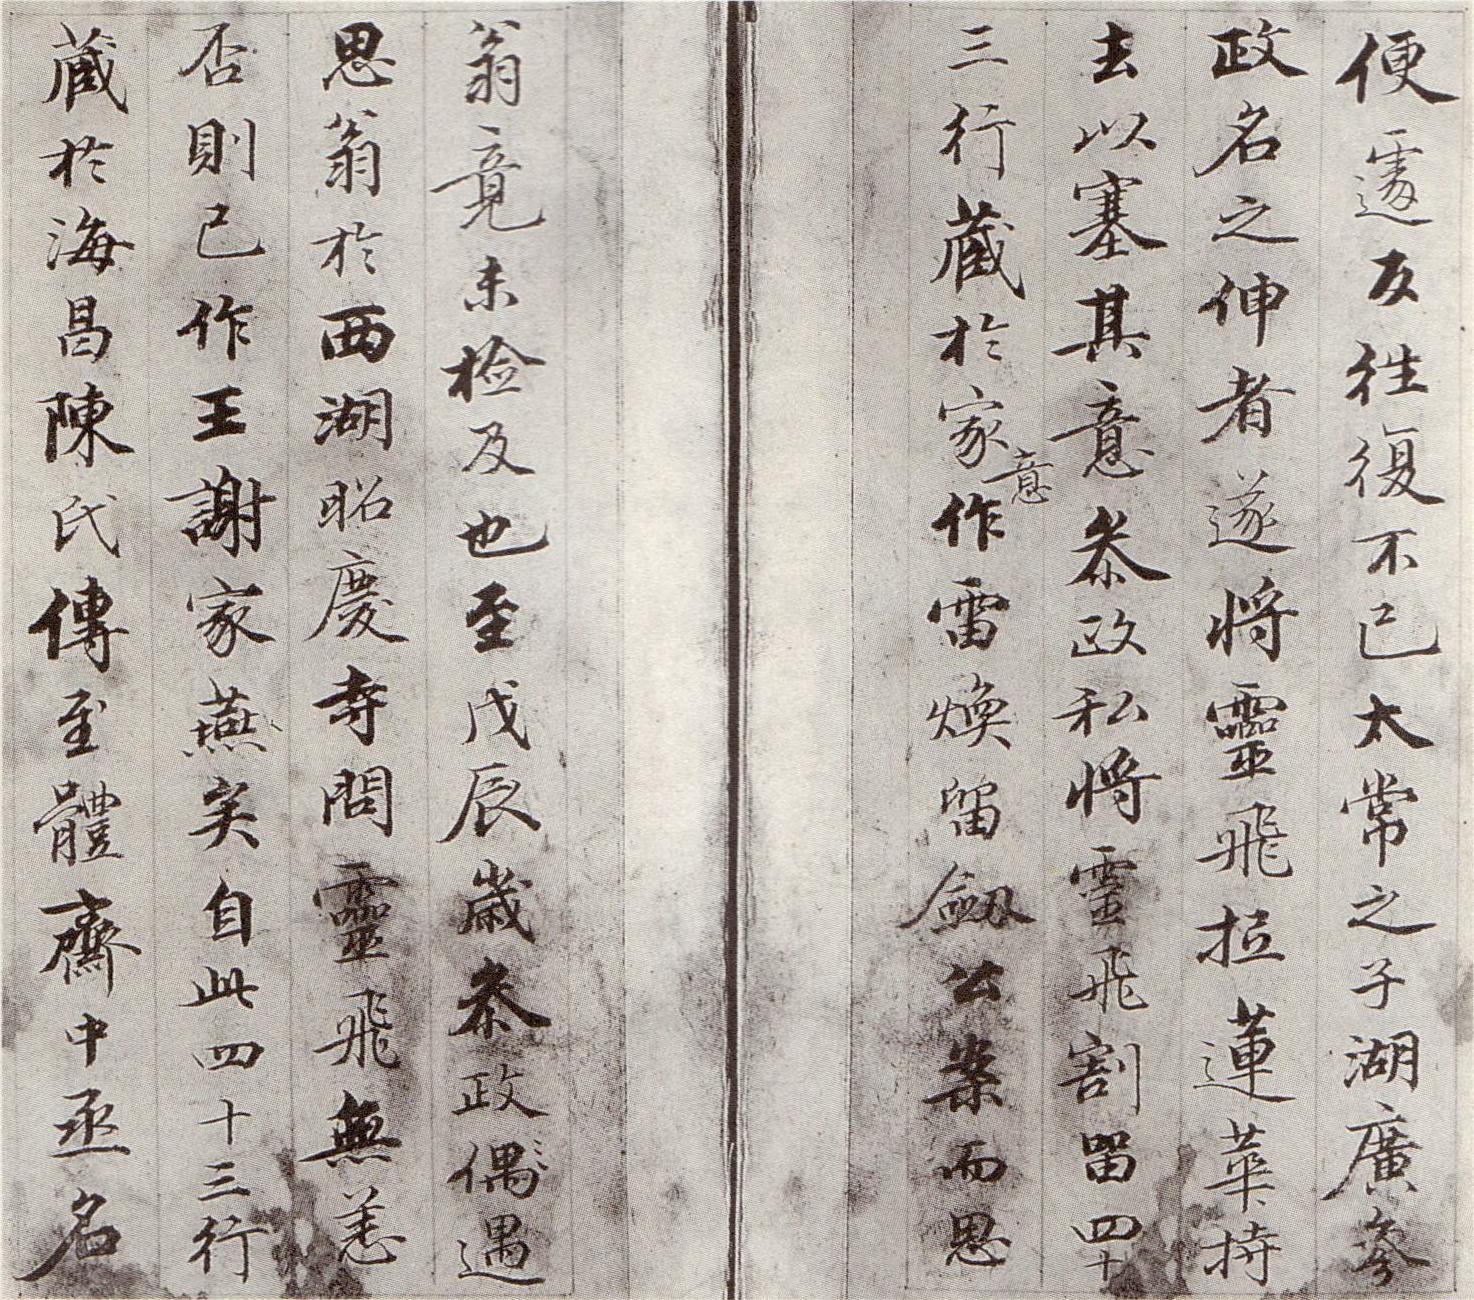 便遽反往復不已太常之子湖廣參
政名之伸者遂將靈飛拉蓮華持
去以塞其意叅政私將靈飛割留四十
三行藏於家意作雷煥留劔公案而思
翁竟未檢及也至戊辰歲叅政偶遇
思翁於西湖昭慶寺問靈飛無恙
否則已作王謝家燕矣自此四十三行
藏於海昌陳氏傳至體齋中丞名